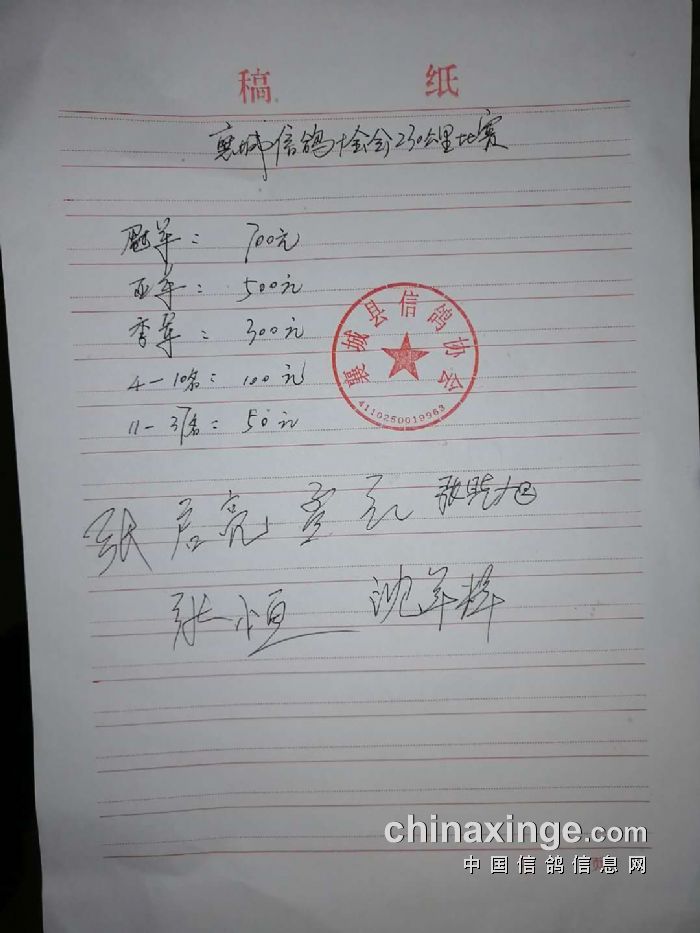 稿 纸
襄城信鸽协会230公里比赛
冠军：700元
亚军：500元
季军：300元
4－10名：100元
11－37名：50元
襄城县信鸽协会
4110250019963
张 亮
张恒
chinaxinge.com
中国信鸽信息网
页